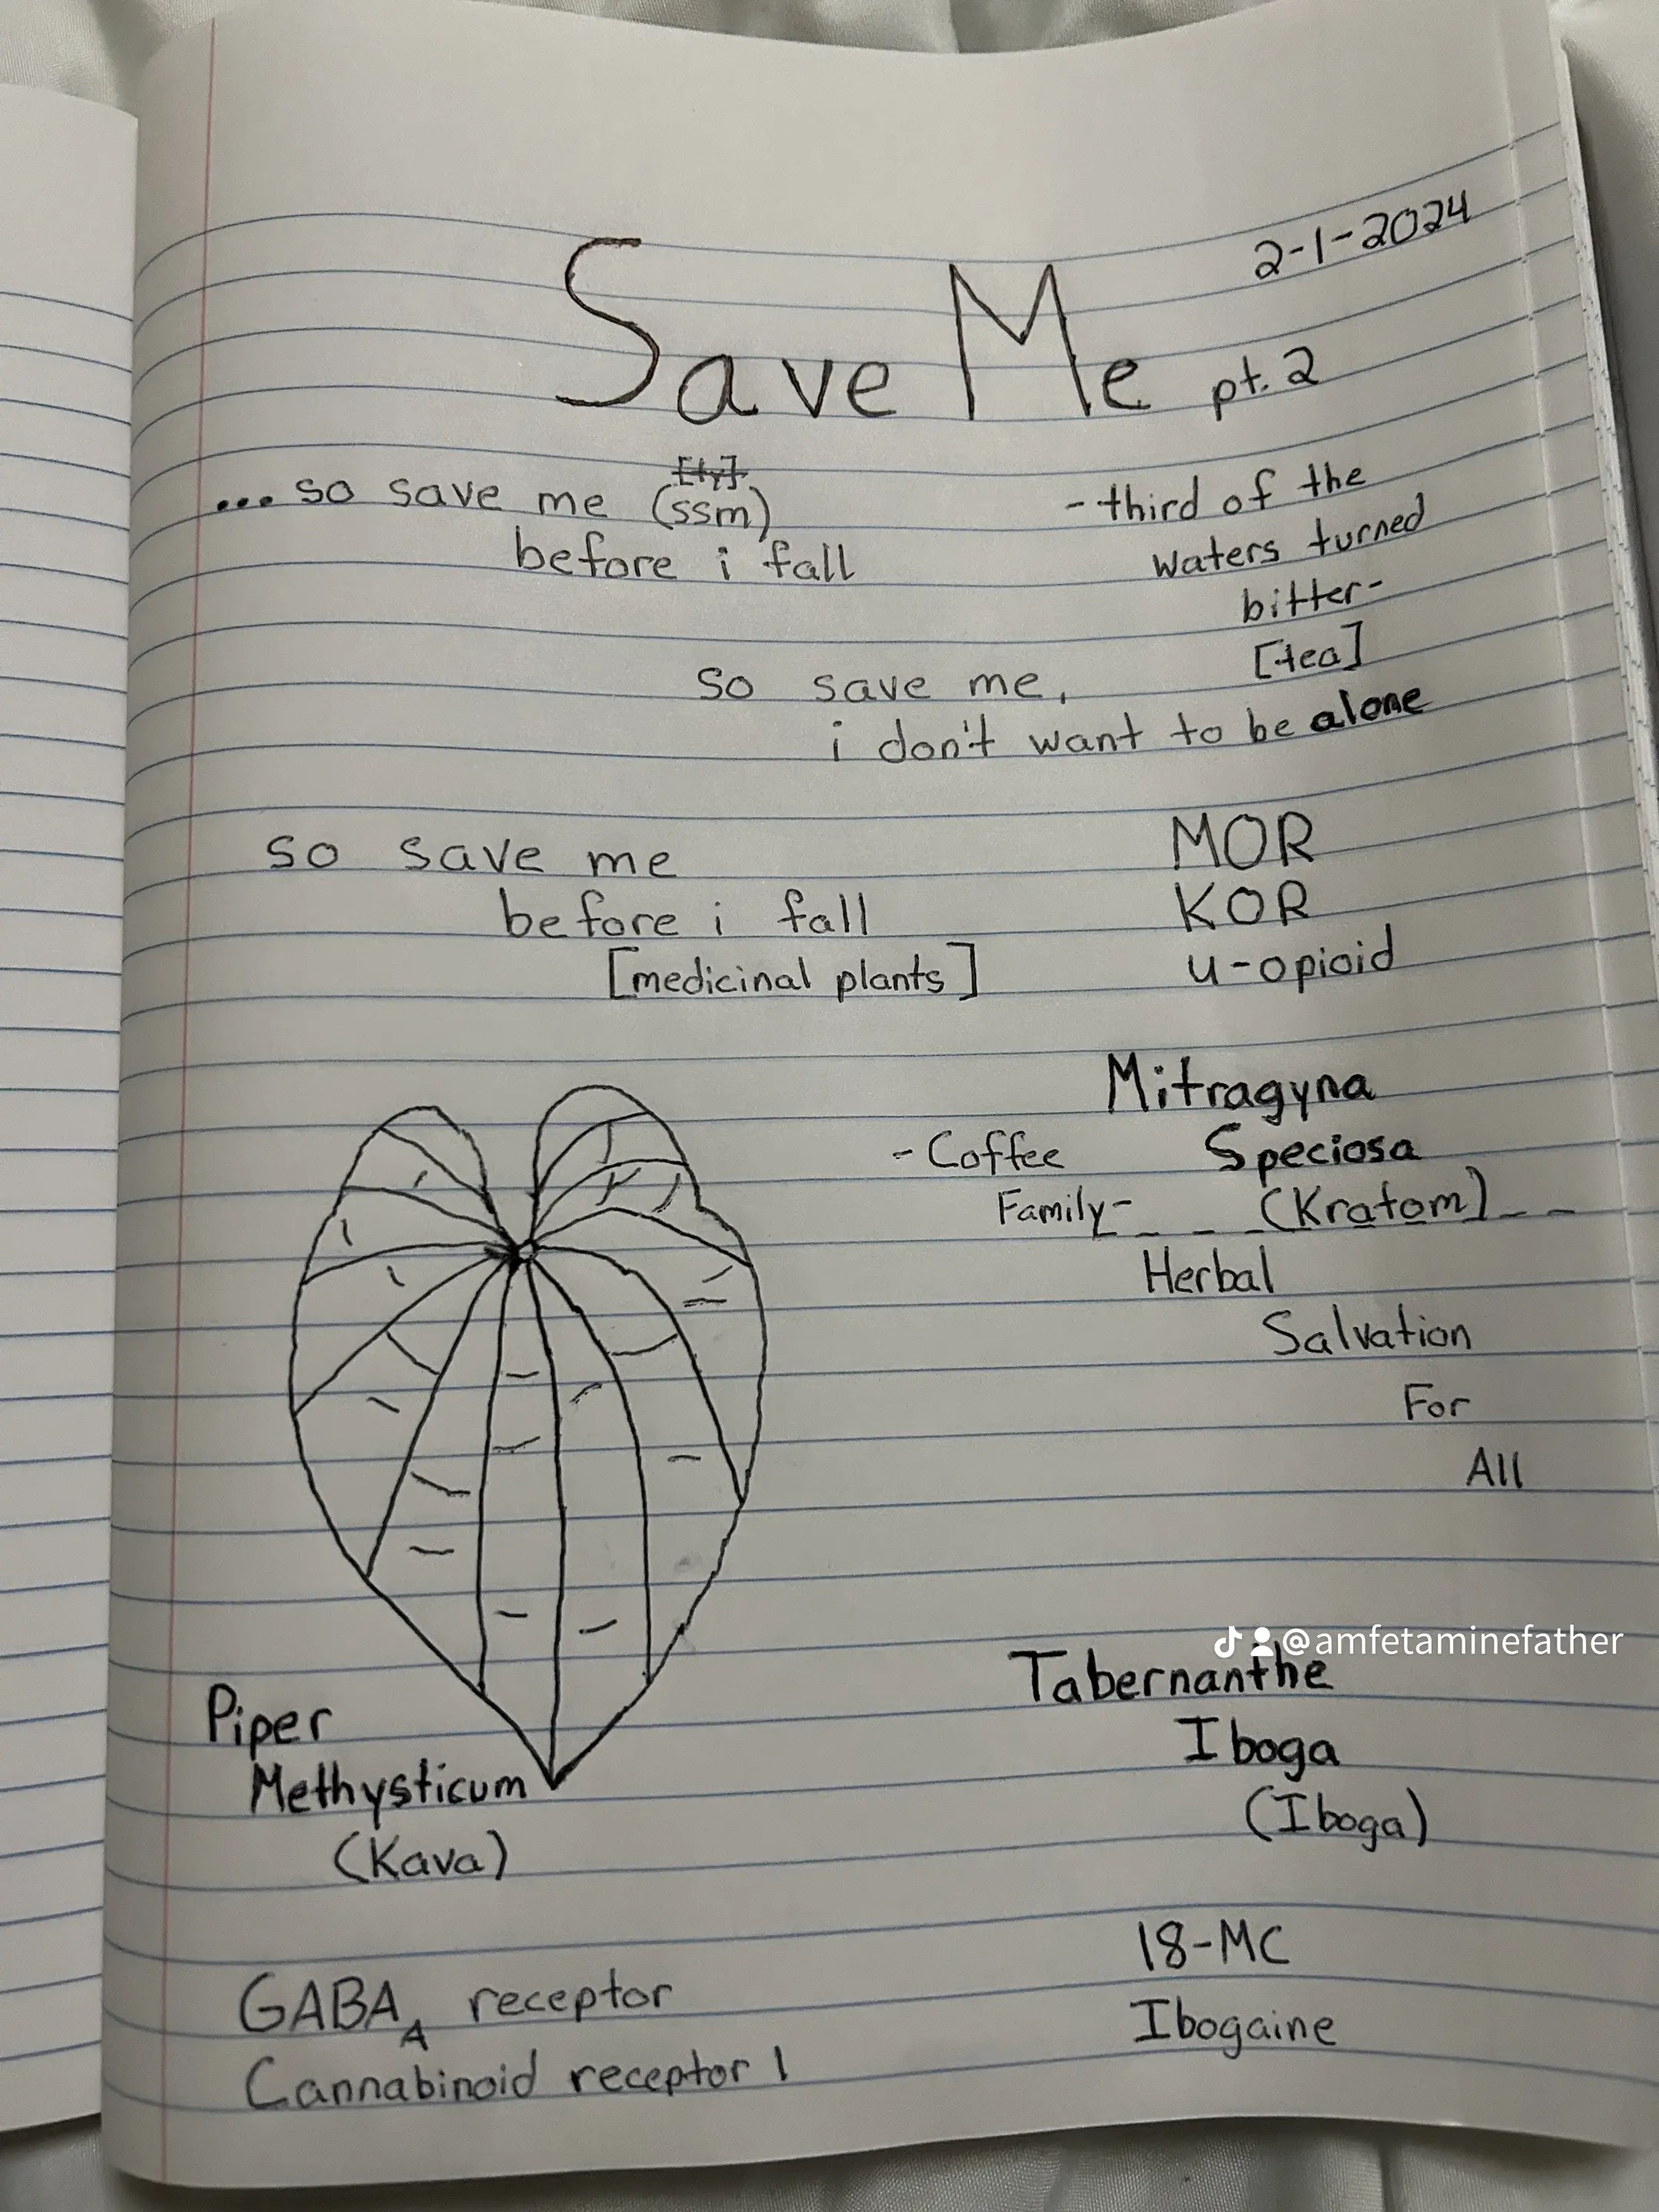 2-1-2024
Save Me pt. 2
[ty]
...so save me (ssm)
before i fall
-third of the
waters turned
bitter-
[tea]
so save me,
i don't want to be alone
so save me
before i fall
[medicinal plants]
MOR
KOR
u-opioid
Mitragyna
Speciosa
(Kratom)
-Coffee
Family-
Herbal
Salvation
For
All
Piper
Methysticum
(Kava)
GABA A receptor
Cannabinoid receptor 1
@amfetaminefather
Tabernanthe
Iboga
(Iboga)
18-MC
Ibogaine